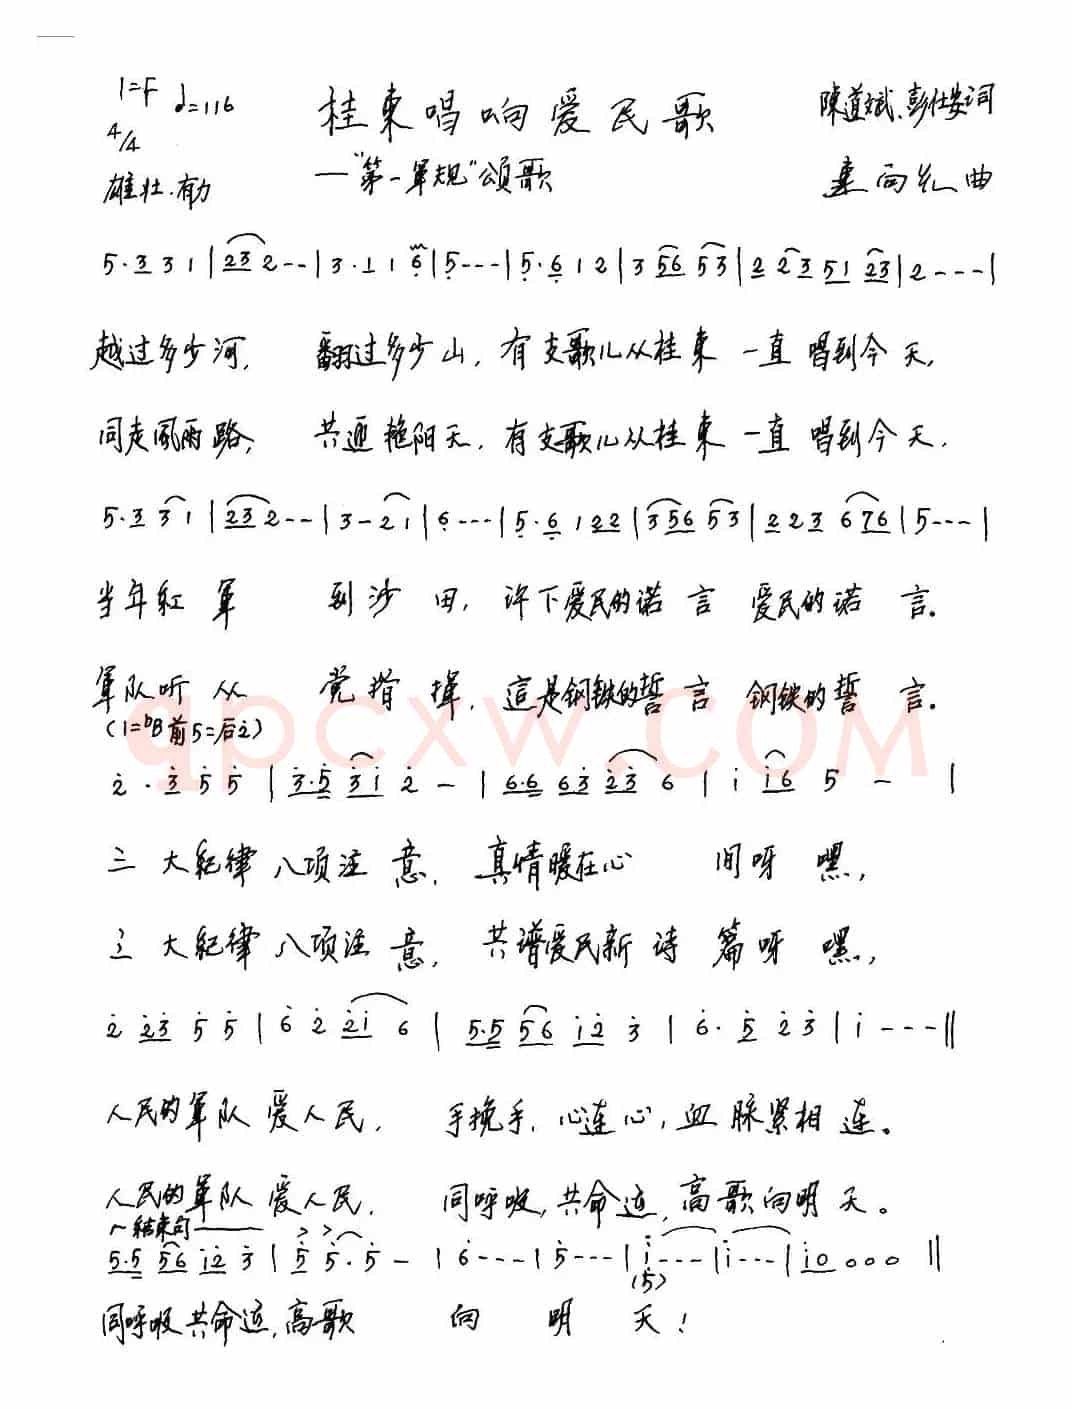 1=F ♩=116 桂東唱响爱民歌 陳道斌、彭仕安词
4/4
雄壮.有力 —"第一軍规"頌歌 曲
5·3 3 1 | 23 2 - - | 3·1 1 6 | 5 - - - | 5·6 1 2 | 3 56 53 | 2 23 51 23 | 2 - - - |
越过多少河, 翻过多少山, 有支歌儿从桂東 一直唱到今天,
同走風雨路, 共迎艳阳天, 有支歌儿从桂東 一直唱到今天.
5·3 3 1 | 23 2 - - | 3 - 2 1 | 6 - - - | 5·6 1 22 | 3 56 53 | 2 23 6 76 | 5 - - - |
当年紅軍 到沙田, 许下爱民的诺言 爱民的诺言.
軍队听从 党指揮, 這是钢铁的誓言 钢铁的誓言.
(1=bB 前5=后2)
2·3 5 5 | 3·5 31 2 - | 6·6 63 23 6 | 1 16 5 - |
三大紀律八项注意, 真情暖在心 间呀嘿,
三大紀律八项注意, 共谱爱民新诗篇呀嘿,
2 23 5 5 | 6 2 21 6 | 5·5 56 12 3 | 6·5 2 3 | 1 - - - ‖
人民的軍队爱人民, 手挽手,心连心,血脉紧相连。
人民的軍队爱人民, 同呼吸,共命运,高歌向明天。
结束句
5·5 56 12 3 | 5 5·5 - | 6 - - - | 5 - - - | 1 - - - | 1 - - - | 10 0 0 0 ‖
(5)
同呼吸共命运,高歌 向 明 天!
qpcxw.COM